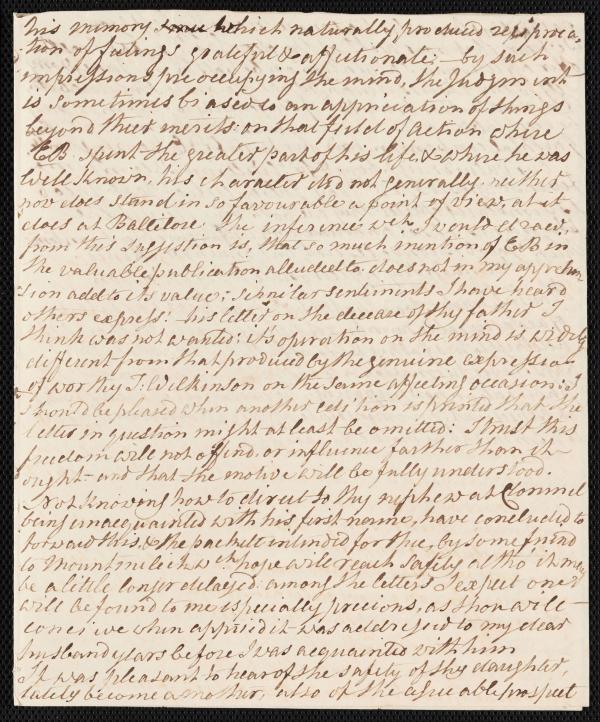 his memory which naturally produced reciproca-
tion of feelings grateful & affectionate; – by such
impressions preoccupying the mind, the Judgment
is sometimes biased to an appreciation of things
beyond their merits: on that field of action where
EB spent the greater part of his life, & where he was
well known, his character did not generally, neither
now does stand in so favourable a point of view, as it
does at Ballitore. The inference wch. I would draw
from this suggestion is, that so much mention of EB in
the valuable publication alluded to does not in my apprehen
sion add to its value; similar sentiments I have heard
others express: – his letter on the decease of thy father I
think was not wanted: it's operation on the mind is widely
different from that produced by the genuine expression
of worthy J. Wilkinson on the same affecting occasion: I
shou'd be pleased when another edition is printed that the
letter in question might at least be omitted: I trust this
freedom will not offend, or influence farther than it
ought – and that the motive will be fully understood.
Not knowing how to direct to thy nephew at Clonmel
being unacquainted with his first name, have concluded to
forward this, & the packett intended for thee, by some friend
to Mountmelick wch. hope will reach safely altho it may
be a little longer delayed: among the letters I expect one
will be found to me especially precious, as thou wilt
conceive when apprised it was addressed to my dear
husband years before I was acquainted with him
It was pleasant to hear of the safety of thy daughter,
lately become a mother, also of the agreeable prospect